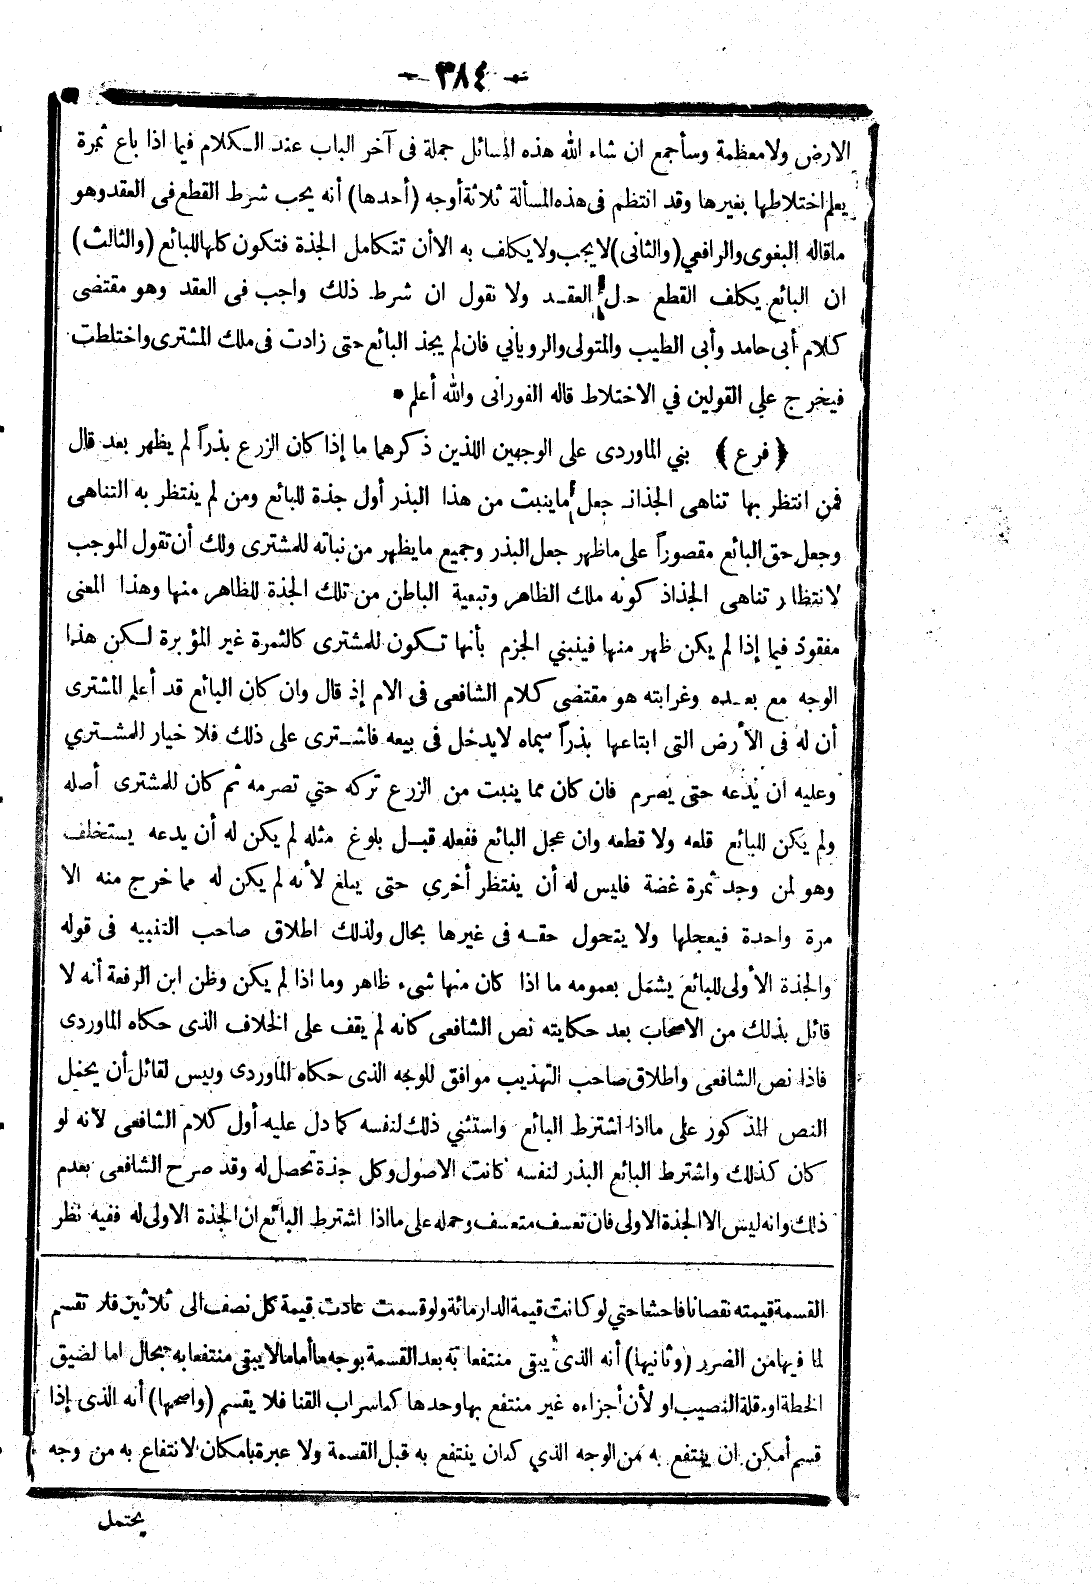 - ٣٨٤ -
الارض ولا معظمة وسأجمع ان شاء الله هذه المسائل جملة فى آخر الباب عند الكلام فيما اذا باع ثمرة
يعلم اختلاطها بغيرها وقد انتظم فى هذه المسألة ثلاثة أوجه (أحدها) أنه يجب شرط القطع فى العقد وهو
ماقاله البغوى والرافعي (والثانى) لا يجب ولا يكلف به الا أن تتكامل الجذة فتكون كلها للبائع (والثالث)
ان البائع يكلف القطع حال العقد ولا نقول ان شرط ذلك واجب فى العقد وهو مقتضى
كلام أبى حامد وأبى الطيب والمتولى والروياني فان لم يجذ البائع حتى زادت فى ملك المشترى واختلطت
فيخرج علي القولين في الاختلاط قاله الفورانى والله أعلم •
﴿ فرع ﴾ بني الماوردى على الوجهين اللذين ذكرهما ما إذا كان الزرع بذراً لم يظهر بعد قال
فمن انتظر بها تناهى الجذاذ جعل ما ينبت من هذا البذر أول جذة للبائع ومن لم ينتظر به التناهى
وجعل حق البائع مقصوراً على ماظهر جعل البذر وجميع مايظهر من نباته للمشترى ولك أن تقول الموجب
لانتظار تناهى الجذاذ كونه ملك الظاهر وتبعية الباطن من تلك الجذة للظاهر منها وهذا المعنى
مفقود فيما إذا لم يكن ظهر منها فينبني الجزم بأنها تكون للمشترى كالثمرة غير المؤبرة لكن هذا
الوجه مع بعده وغرابته هو مقتضي كلام الشافعى فى الام إذ قال وان كان البائع قد أعلم المشترى
أن له فى الأرض التى ابتاعها بذراً سماه لايدخل فى بيعه فاشترى على ذلك فلا خيار للمشتري
وعليه ان يدعه حتى يصرم فان كان مما ينبت من الزرع تركه حتي تصرمه ثم كان للمشترى أصله
ولم يكن للبائع قلعه ولا قطعه وان عجل البائع ففعله قبل بلوغ مثله لم يكن له أن يدعه يستخلف
وهو لمن وجد ثمرة غضة فليس له أن ينتظر أخري حتى يبلغ لأنه لم يكن له مما خرج منه الا
مرة واحدة فيعجلها ولا يتحول حقه فى غيرها بحال ولذلك اطلاق صاحب التنبيه فى قوله
والجذة الأولى للبائع يشمل بعمومه ما اذا كان منها شىء ظاهر وما اذا لم يكن وظن ابن الرفعة أنه لا
قائل بذلك من الاصحاب بعد حكايته نص الشافعى كانه لم يقف على الخلاف الذى حكاه الماوردى
فاذا نص الشافعى واطلاق صاحب التهذيب موافق للوجه الذى حكاه الماوردى وليس لقائل أن يحمل
النص المذكور على مااذا اشترط البائع واستثني ذلك لنفسه كما دل عليه أول كلام الشافعى لأنه لو
كان كذلك واشترط البائع البذر لنفسه كانت الاصول وكل جذة تحصل له وقد صرح الشافعى بعدم
ذلك وانه ليس الا الجذة الاولى فان تعسف متعسف وحمله على مااذا اشترط البائع ان الجذة الاولى له ففيه نظر
القسمة قيمته نقصانا فاحشا حتي لو كانت قيمة الدار مائة ولو قسمت عادت قيمة كل نصف الى ثلاثين فلا تقسم
لما فيها من الضرر (وثانيها) أنه الذى يبقى منتفعا به بعد القسمة بوجه ما أما مالا يبقى منتفعا به بحال اما لضيق
الخطة او قلة النصيب او لأن أجزاءه غير منتفع بها وحدها كاسراب القنا فلا يقسم (واصحها) أنه الذى إذا
قسم أمكن ان ينتفع به من الوجه الذي كان ينتفع به قبل القسمة ولا عبرة بامكان الانتفاع به من وجه
يحتمل